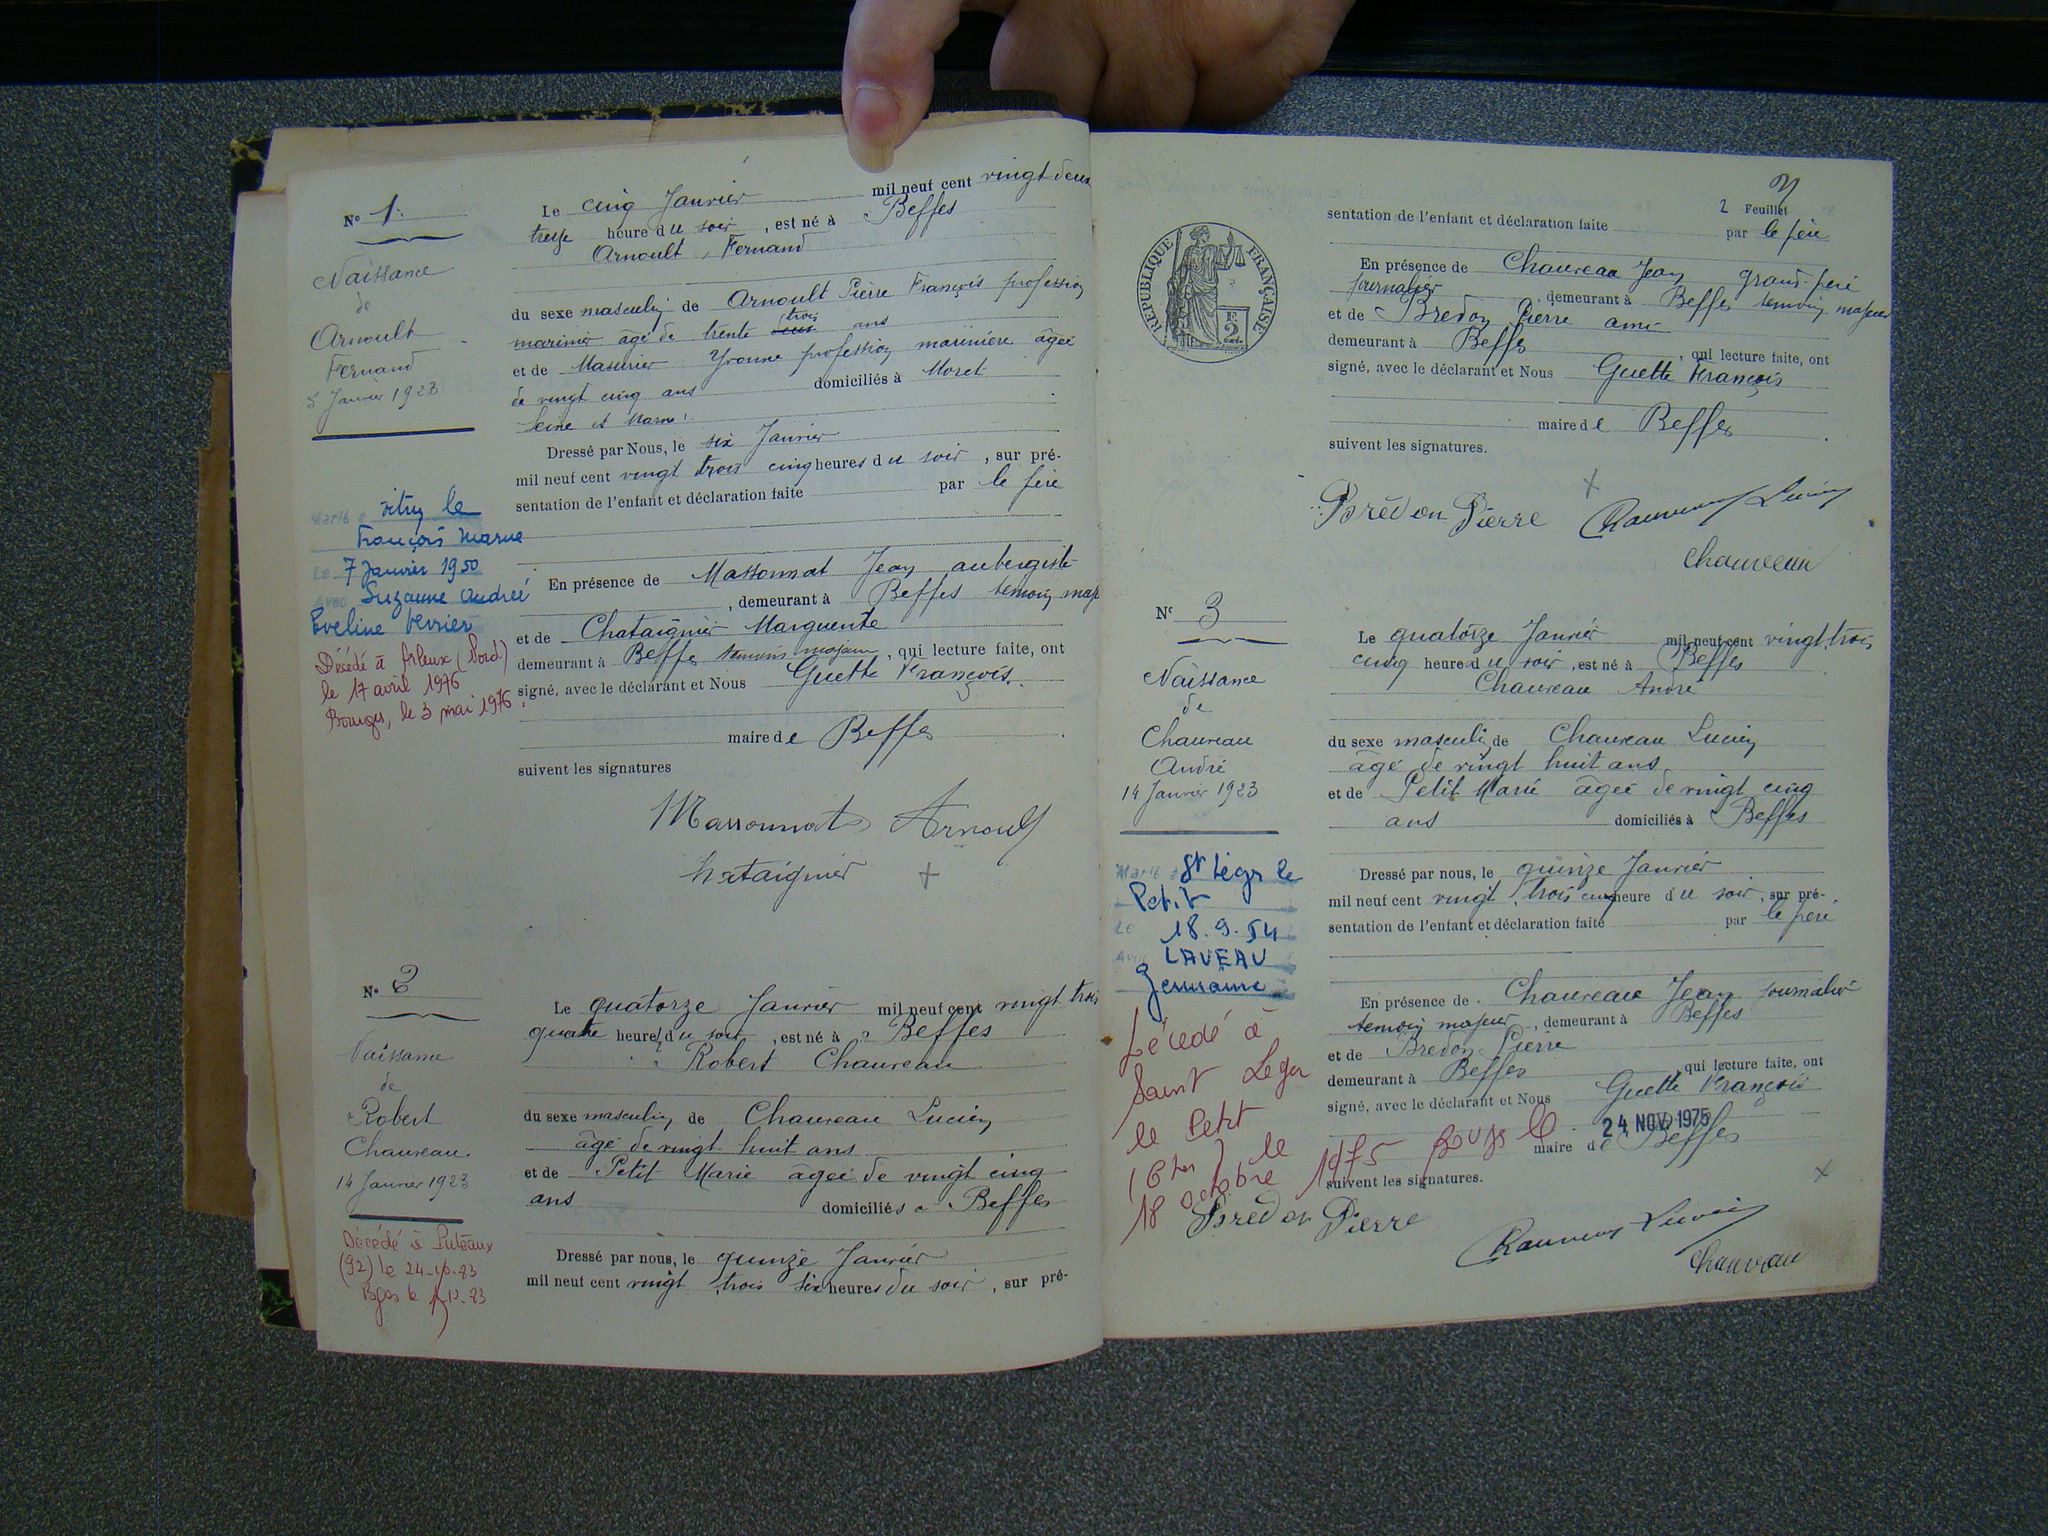 N° 1.
Naissance
de
Arnoult
Fernand
5 Janvier 1923
Le cinq Janvier mil neuf cent vingt deux
treize heure du soir, est né à Beffes
Arnoult, Fernand
du sexe masculin de Arnoult Pierre François profession
marinier âgé de trente deux trois ans
et de Masurier Yvonne profession marinière âgée
de vingt cinq ans domiciliés à Moret
Seine et Marne.
Dressé par Nous, le six Janvier
mil neuf cent vingt trois cinq heures du soir, sur pré-
sentation de l'enfant et déclaration faite par le père
En présence de Massonnat Jean aubergiste
, demeurant à Beffes temoin maj
et de Chataignier Marguerite
demeurant à Beffes temoins majeur, qui lecture faite, ont
signé, avec le déclarant et Nous Guette François.
maire de Beffes
suivent les signatures
Marié à Vitry le
François Marne
Le 7 Janvier 1950
Avec Suzanne Andrée
Eveline Verrier
Décédé à Arleux (Nord)
le 17 avril 1976
Bourges, le 3 mai 1976
Massonnat Arnoult
hataignier
N° 2
Naissance
de
Robert
Chauveau.
14 Janvier 1923
Décédé à Puteaux
(92) le 24-10-83
Le quatorze Janvier mil neuf cent vingt trois
quatre heures du soir, est né à Beffes
Robert Chauveau
du sexe masculin de Chauveau Lucien
âgé de vingt huit ans
et de Petit Marie âgée de vingt cinq
ans domiciliés à Beffes
Dressé par nous, le quinze Janvier
mil neuf cent vingt trois six heures du soir, sur pré-
2 Feuillet
sentation de l'enfant et déclaration faite par le père
En présence de Chauveau Jean grand-père
journalier, demeurant à Beffes temoin majeur
et de Bredon Pierre ami
demeurant à Beffes, qui lecture faite, ont
signé, avec le déclarant et Nous Guette François
maire de Beffes
suivent les signatures.
RÉPUBLIQUE FRANÇAISE
2
Brédon Pierre Chauveau Lucien
Chauveau
N° 3
Naissance
de
Chauveau
André
14 Janvier 1923
Le quatorze Janvier mil neuf cent vingt trois,
cinq heure du soir, est né à Beffes
Chauveau André
du sexe masculin de Chauveau Lucien
âgé de vingt huit ans
et de Petit Marie âgée de vingt cinq
ans domiciliés à Beffes
Dressé par nous, le quinze Janvier
mil neuf cent vingt trois cinq heure du soir, sur pré-
sentation de l'enfant et déclaration faite par le père
En présence de Chauveau Jean journalier
temoin majeur, demeurant à Beffes
et de Bredon Pierre
demeurant à Beffes, qui lecture faite, ont
signé, avec le déclarant et Nous Guette François
maire de Beffes
suivent les signatures.
Marié à St Léger le
Petit
Le 18.9.54
Avec LAVEAU
Germaine
Décédé à
Saint Léger
le Petit
(Cher) le
18 octobre 1975 Bourges le
24 NOV. 1975
Brédon Pierre
Chauveau Lucien
Chauveau